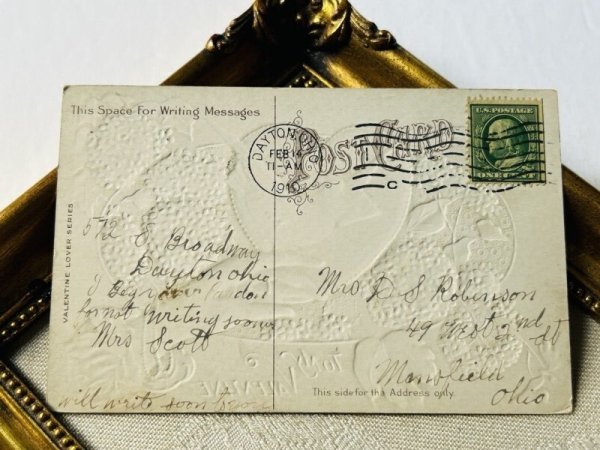 This Space For Writing Messages
POST CARD
DAYTON, OHIO
FEB 14
11-AM
1910
C
U.S. POSTAGE
ONE CENT
VALENTINE LOVER SERIES
572 S Broadway
Dayton Ohio
I Beg your Pardon
for not writing sooner
Mrs Scott
will write soon to you
Mrs D S Robinson
49 West 2nd st
Mansfield
Ohio
This side for the Address only.
To My Valentine